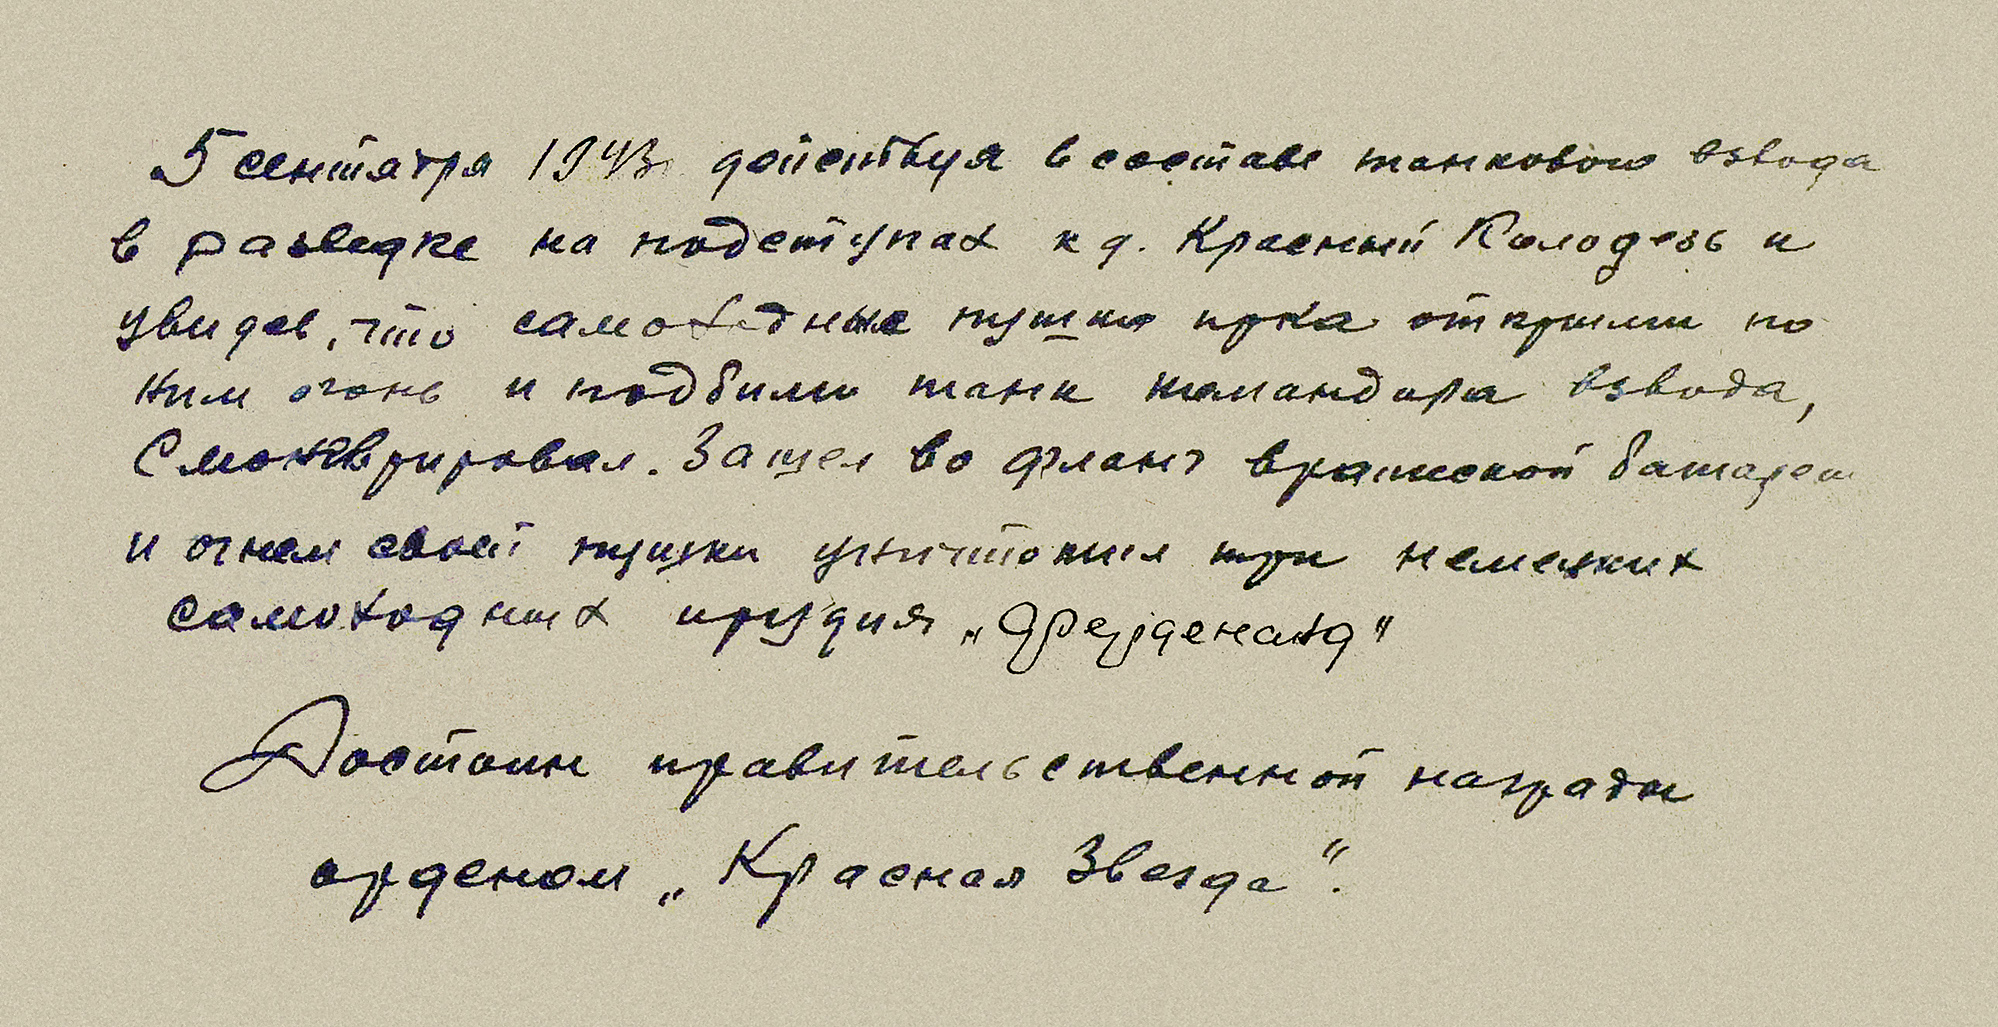 5 сентября 1943г действуя в составе танкового взвода
в разведке на подступах к д. Красный Колодезь и
увидев, что самоходные пушки врага открыли по
ним огонь и подбили танк командира взвода,
Сманеврировал. Зашел во фланг вражеской батареи
и огнем своей пушки уничтожил три немецких
самоходных орудия „Ферденанд"
Достоин правительственной награды
орденом „Красная Звезда".